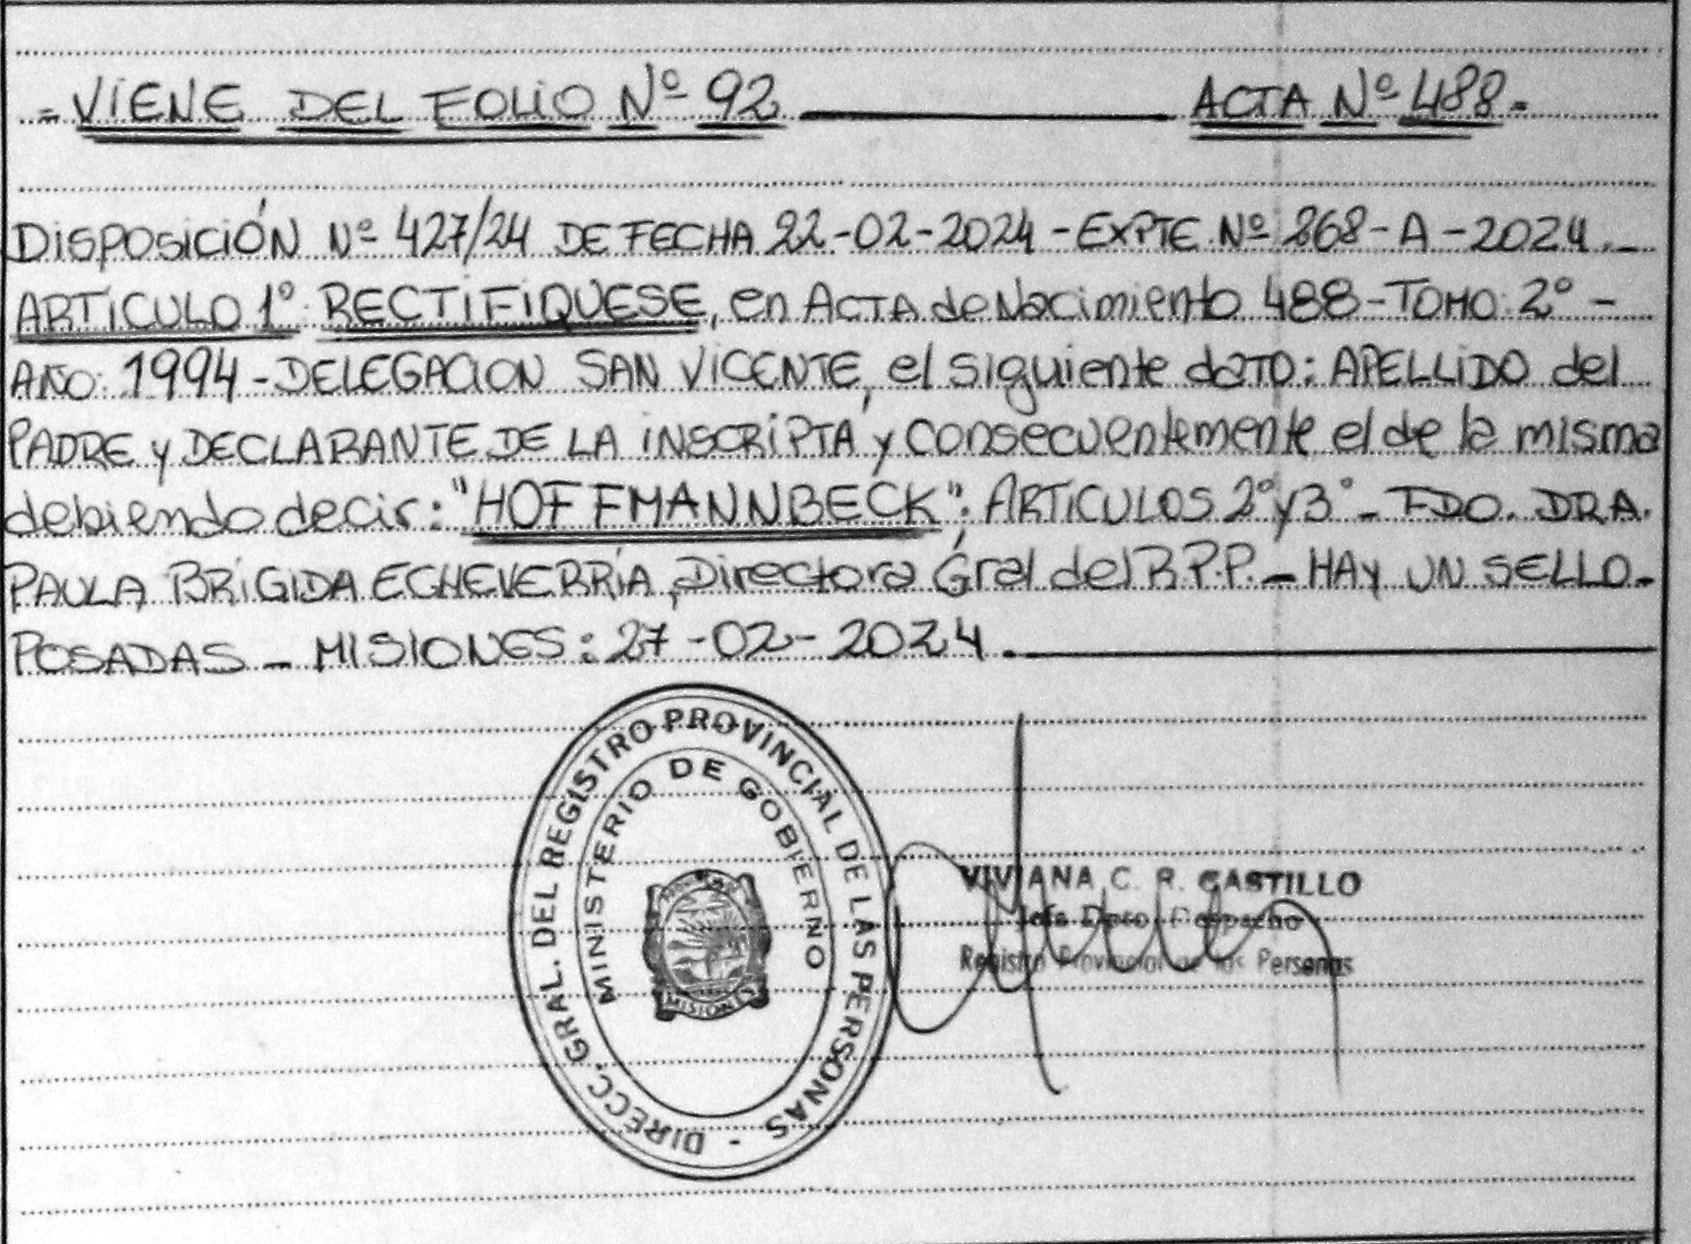 = VIENE DEL FOLIO Nº 92 ACTA Nº 488=
DISPOSICIÓN Nº 427/24 DE FECHA 22-02-2024 - EXPTE Nº 268-A-2024.-
ARTICULO 1º: RECTIFIQUESE, en ACTA de Nacimiento 488-TOMO: 2º -
AÑO: 1994 - DELEGACION SAN VICENTE, el siguiente dato: APELLIDO del
PADRE y DECLARANTE DE LA INSCRIPTA y consecuentemente el de la misma
debiendo decir: "HOFFMANNBECK"; ARTICULOS 2º y 3º - FDO. DRA.
PAULA BRÍGIDA ECHEVERRÍA, Directora Gral del R.P.P. - HAY UN SELLO-
POSADAS - MISIONES: 27-02-2024.
DIRECC. GRAL. DEL REGISTRO PROVINCIAL DE LAS PERSONAS -
MINISTERIO DE GOBIERNO
MISIONES
VIVIANA C. R. CASTILLO
Jefe Dpto. Despacho
Registro Provincial de las Personas